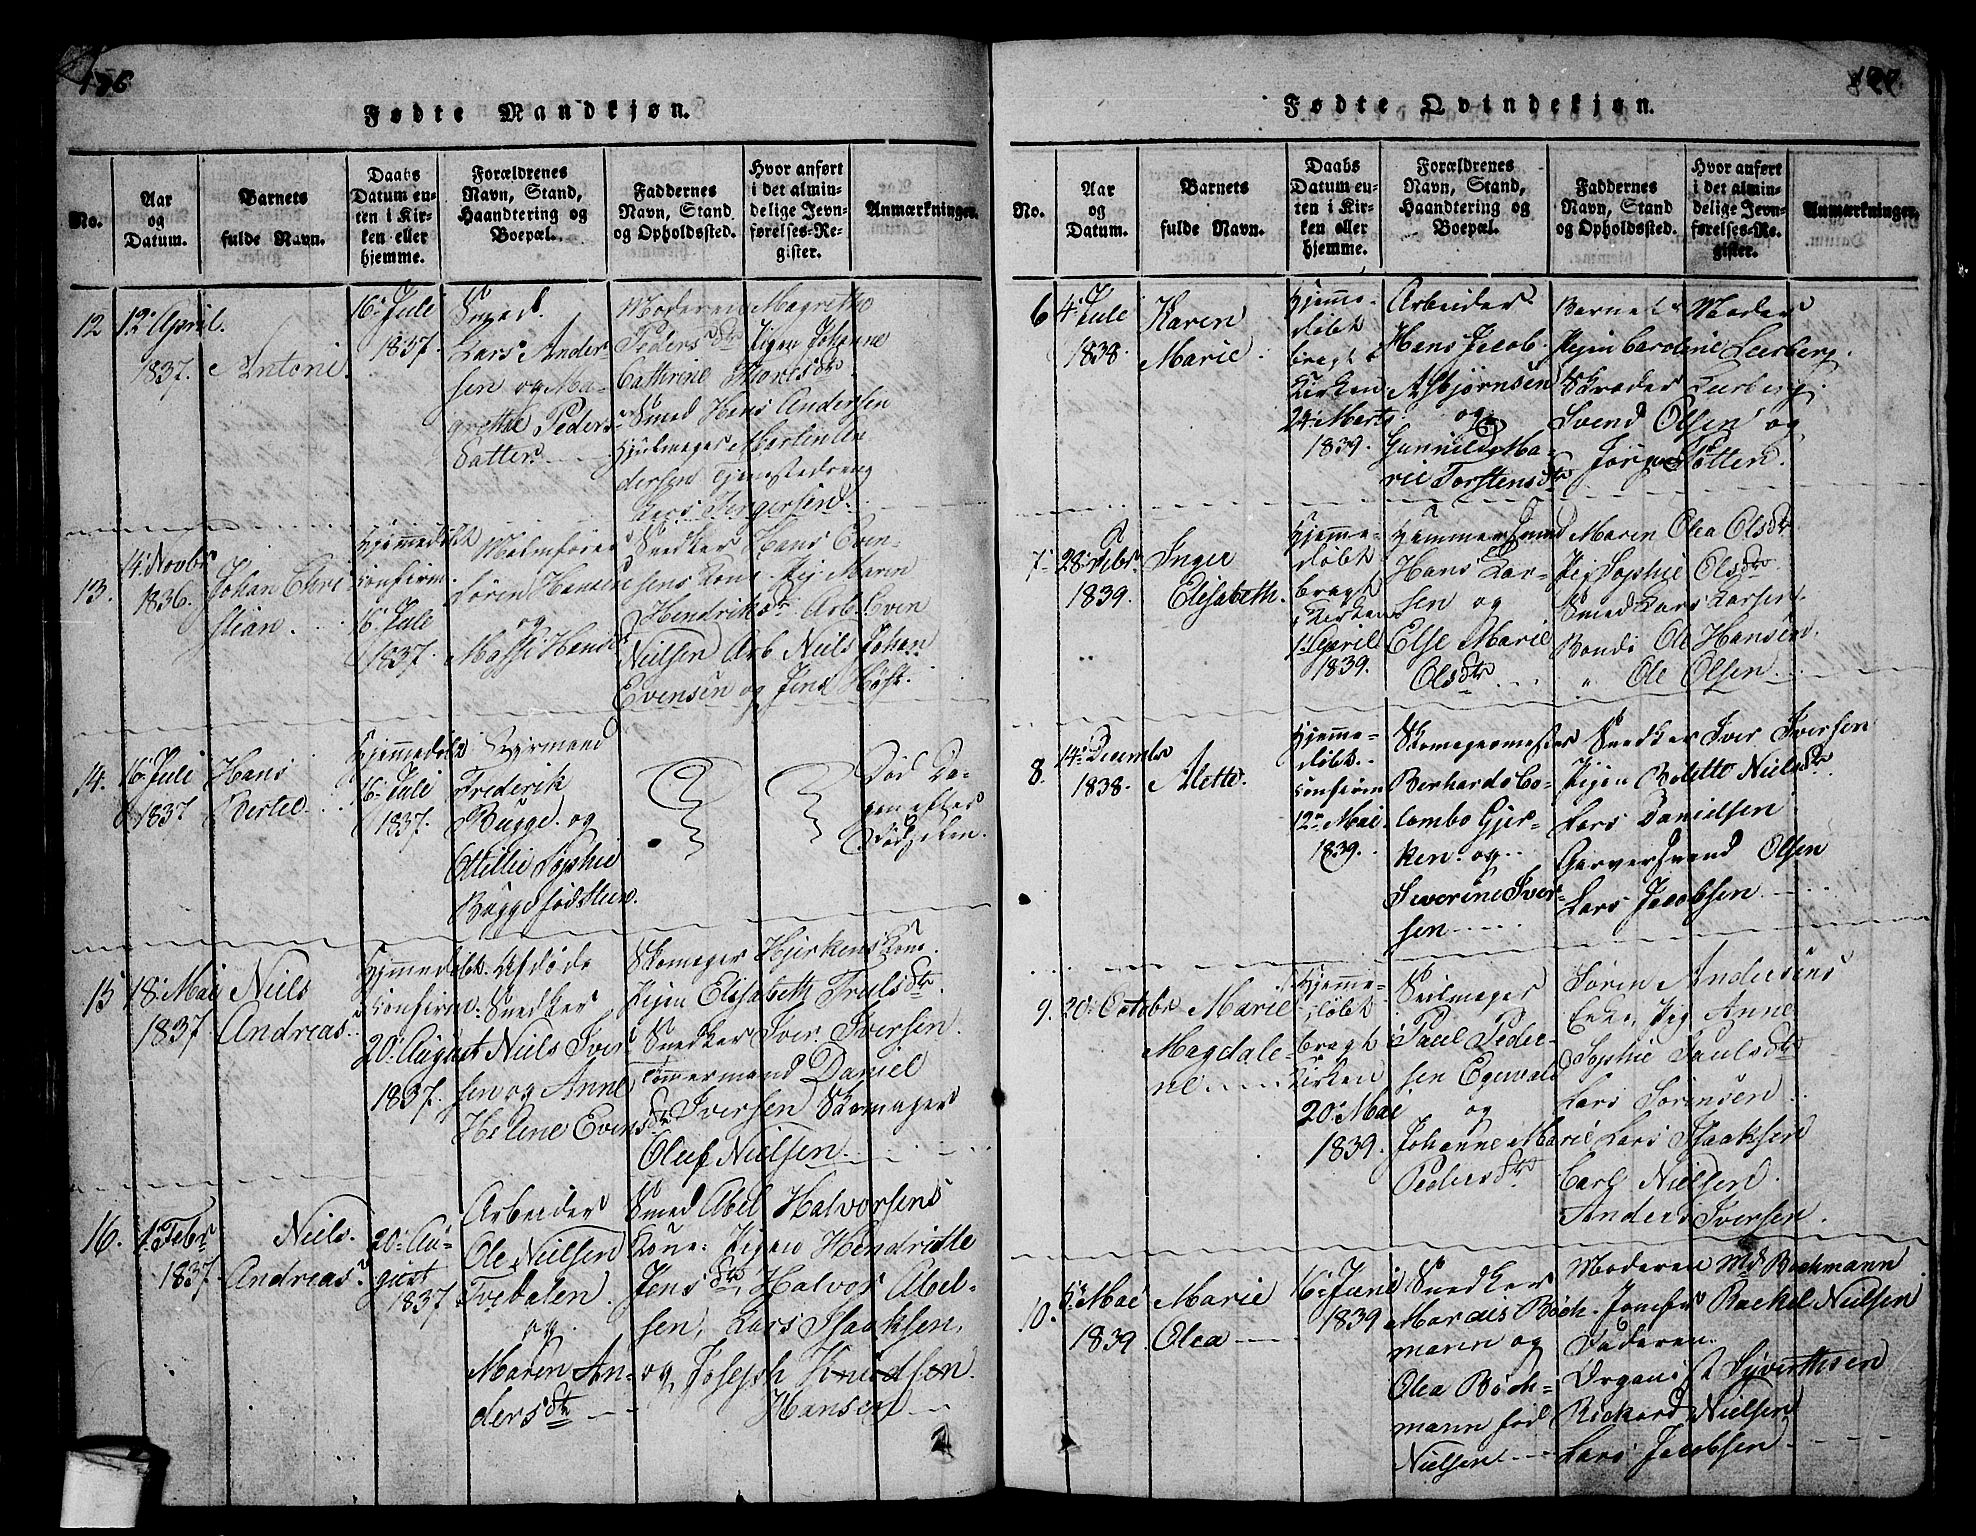 176
Fødte Mandkjøn.
No.
Aar
og
Datum.
Barnets
fulde Navn.
Daabs
Datum en-
ten i Kir-
ken eller
hjemme.
Forældrenes
Navn, Stand,
Haandtering og
Boepæl.
Faddernes
Navn, Stand
og Opholdssted.
Hvor anført
i det almin-
delige Jevn-
førelses-Re-
gister.
Anmærkninger.
12
12 April
1837.
Antoni.
16 Juli
1837.
Smed
Lars Ander-
sen og Ma-
grethe Peders
Datter.
Moderen Magrethe
Peders Dtr Pigen Johanne
Cathrine Thores Dtr
Smed Hans Andersen
Hjulmager Morten An
dersen Tjenestedreng
Lars Jørgensen.
13.
14 Novbr
1836.
Johan Chri
stian.
Hjemmedøbt
confirm.
16 Juli
1837.
Søren Hansen
og
Massi Hansd
Snedker Hans Even-
sens Kone. Pig Maren
Hendriks Dr Arb. Even
Nielsen Arb Niels Johan
Evensen og Jens Høst.
14.
16 Juli
1837
Hans
Bertel.
Hjemmedøbt
16 Juli
1837.
Styrmand
Frederik
Bugge og
Ottilie Sophie
Bugge fød Steen.
Død Da-
gen efter
Fødselen.
15
18 Mai
1837
Niels
Andreas.
Hjemmedøbt.
confirm.
20 August
1837.
Afdøde
Snedker
Niels Iver
sen og Anne
Helene Evens Dtr
Skomager Hjerkens Kone.
Pigen Elisabeth Truls Dtr.
Snedker Iver Iversen.
Tømmermand Daniel
Iversen Skomager
Oluf Nielsen.
16.
1 Febr
1837.
Niels
Andreas.
20 Au-
gust
1837
Arbeider
Ole Nielsen
Tvedalen.
og
Maren An-
ders Dtr
Smed Abel Halvorsens
Kone. Pigen Hendritte
Jens Dtr, Halvor Abel-
sen, Lars Isaaksen,
og Joseph Knudsen.
Hansen
177.
Fødte Qvindekjøn.
No.
Aar
og
Datum.
Barnets
fulde Navn.
Daabs
Datum en-
ten i Kir-
ken eller
hjemme.
Forældrenes
Navn, Stand,
Haandtering og
Boepæl.
Faddernes
Navn, Stand
og Opholdssted.
Hvor anført
i det almin-
delige Jevn-
førelses-Re-
gister.
Anmærkninger.
6
4 Juli
1838.
Karen
Marie.
Hjemme-
døbt
bragt i
Kirken
24 Marts
1839.
Arbeider
Hans Jacob
Asbjørnsen
og
Gunnild Ma-
rie Torstens Dtr
Barnets Moder
Pigen Caroline Leerberg.
Skræder Leerberg.
Svend Olsen og
Jørgen Totten.
7
28 Febr.
1839.
Inger
Elisabeth.
Hjemme-
døbt
bragt
i Kirken
1 April
1839.
Hammersmed
Hans Lar-
sen og
Else Marie
Ols Dtr
Maren Olea Ols Dtr.
Pig Sophie Ols Dtr
Smed Lars Larsen.
Bonde Ole Hansen.
" Ole Olsen.
8.
14 Decembr
1838.
Alette.
Hjemme-
døbt.
confirm
12 Mai.
1839.
Skomagermester
Berhard Co-
lombo Gjer-
ken og
Severine Iver-
sen
Snedker Iver Iversen
Pigen Bolette Niels Dtr.
Lars Danielsen
Garversvend Olsen
Lars Jacobsen
9.
20 Octobr
Marie
Magdale-
ne.
Hjemme-
døbt
bragt i
Kirken
20 Mai
1839.
Seilmager
Paul Peder-
sen Egewald
og
Johanne Marie
Peders Dtr
Søren Andersens
Enke, Pig Anne
Sophie Pauls Dtr
Lars Sørensen
Lars Isaaksen
Carl Nielsen
Anders Iversen.
10.
Mai
1839.
Marie
Olea
16 Juni
1839
Snedker
Marcus Böch-
mann og
Olea Böch-
mann fød
Nielsen
Moderen Md Bochmann
Jomfr Rachel Nielsen
Faderen.
Organist Syvertsen
Rickard Nielsen
Lars Jacobsen